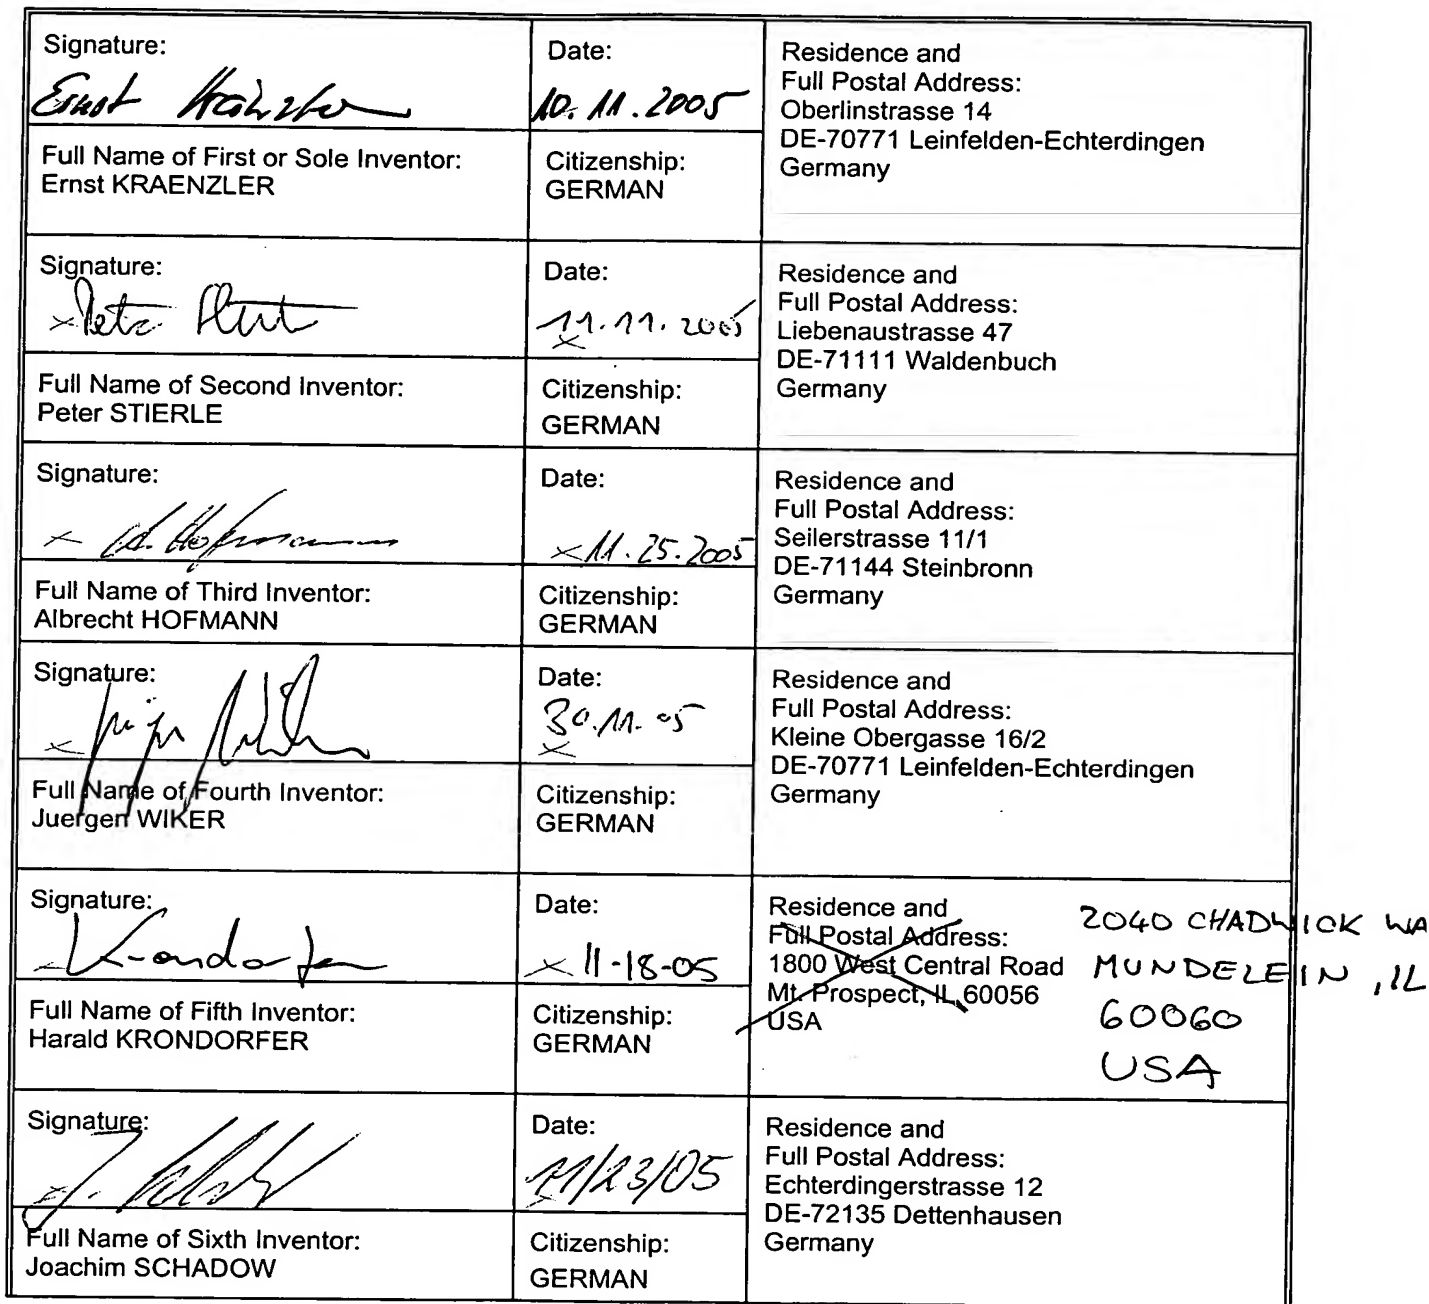 Signature:
Ernst Kränzler
Date:
10.11.2005
Residence and
Full Postal Address:
Oberlinstrasse 14
DE-70771 Leinfelden-Echterdingen
Germany
Full Name of First or Sole Inventor:
Ernst KRAENZLER
Citizenship:
GERMAN
Signature:
Peter
Date:
11.11.2005
Residence and
Full Postal Address:
Liebenaustrasse 47
DE-71111 Waldenbuch
Germany
Full Name of Second Inventor:
Peter STIERLE
Citizenship:
GERMAN
Signature:
A. Hofmann
Date:
11.25.2005
Residence and
Full Postal Address:
Seilerstrasse 11/1
DE-71144 Steinbronn
Germany
Full Name of Third Inventor:
Albrecht HOFMANN
Citizenship:
GERMAN
Signature:
Date:
30.11.05
Residence and
Full Postal Address:
Kleine Obergasse 16/2
DE-70771 Leinfelden-Echterdingen
Germany
Full Name of Fourth Inventor:
Juergen WIKER
Citizenship:
GERMAN
Signature:
Krondorfer
Date:
11-18-05
Residence and
Full Postal Address:
1800 West Central Road
Mt. Prospect, IL 60056
USA
2040 CHADWICK WA
MUNDELEIN, IL
60060
USA
Full Name of Fifth Inventor:
Harald KRONDORFER
Citizenship:
GERMAN
Signature:
Date:
11/23/05
Residence and
Full Postal Address:
Echterdingerstrasse 12
DE-72135 Dettenhausen
Germany
Full Name of Sixth Inventor:
Joachim SCHADOW
Citizenship:
GERMAN